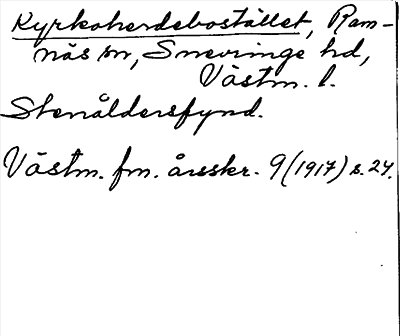 Kyrkoherdebostället, Ram-
näs sn, Snevringe hd,
Västm. l.
Stenåldersfynd.
Västm. fm. årsskr. 9 (1917) s. 24.